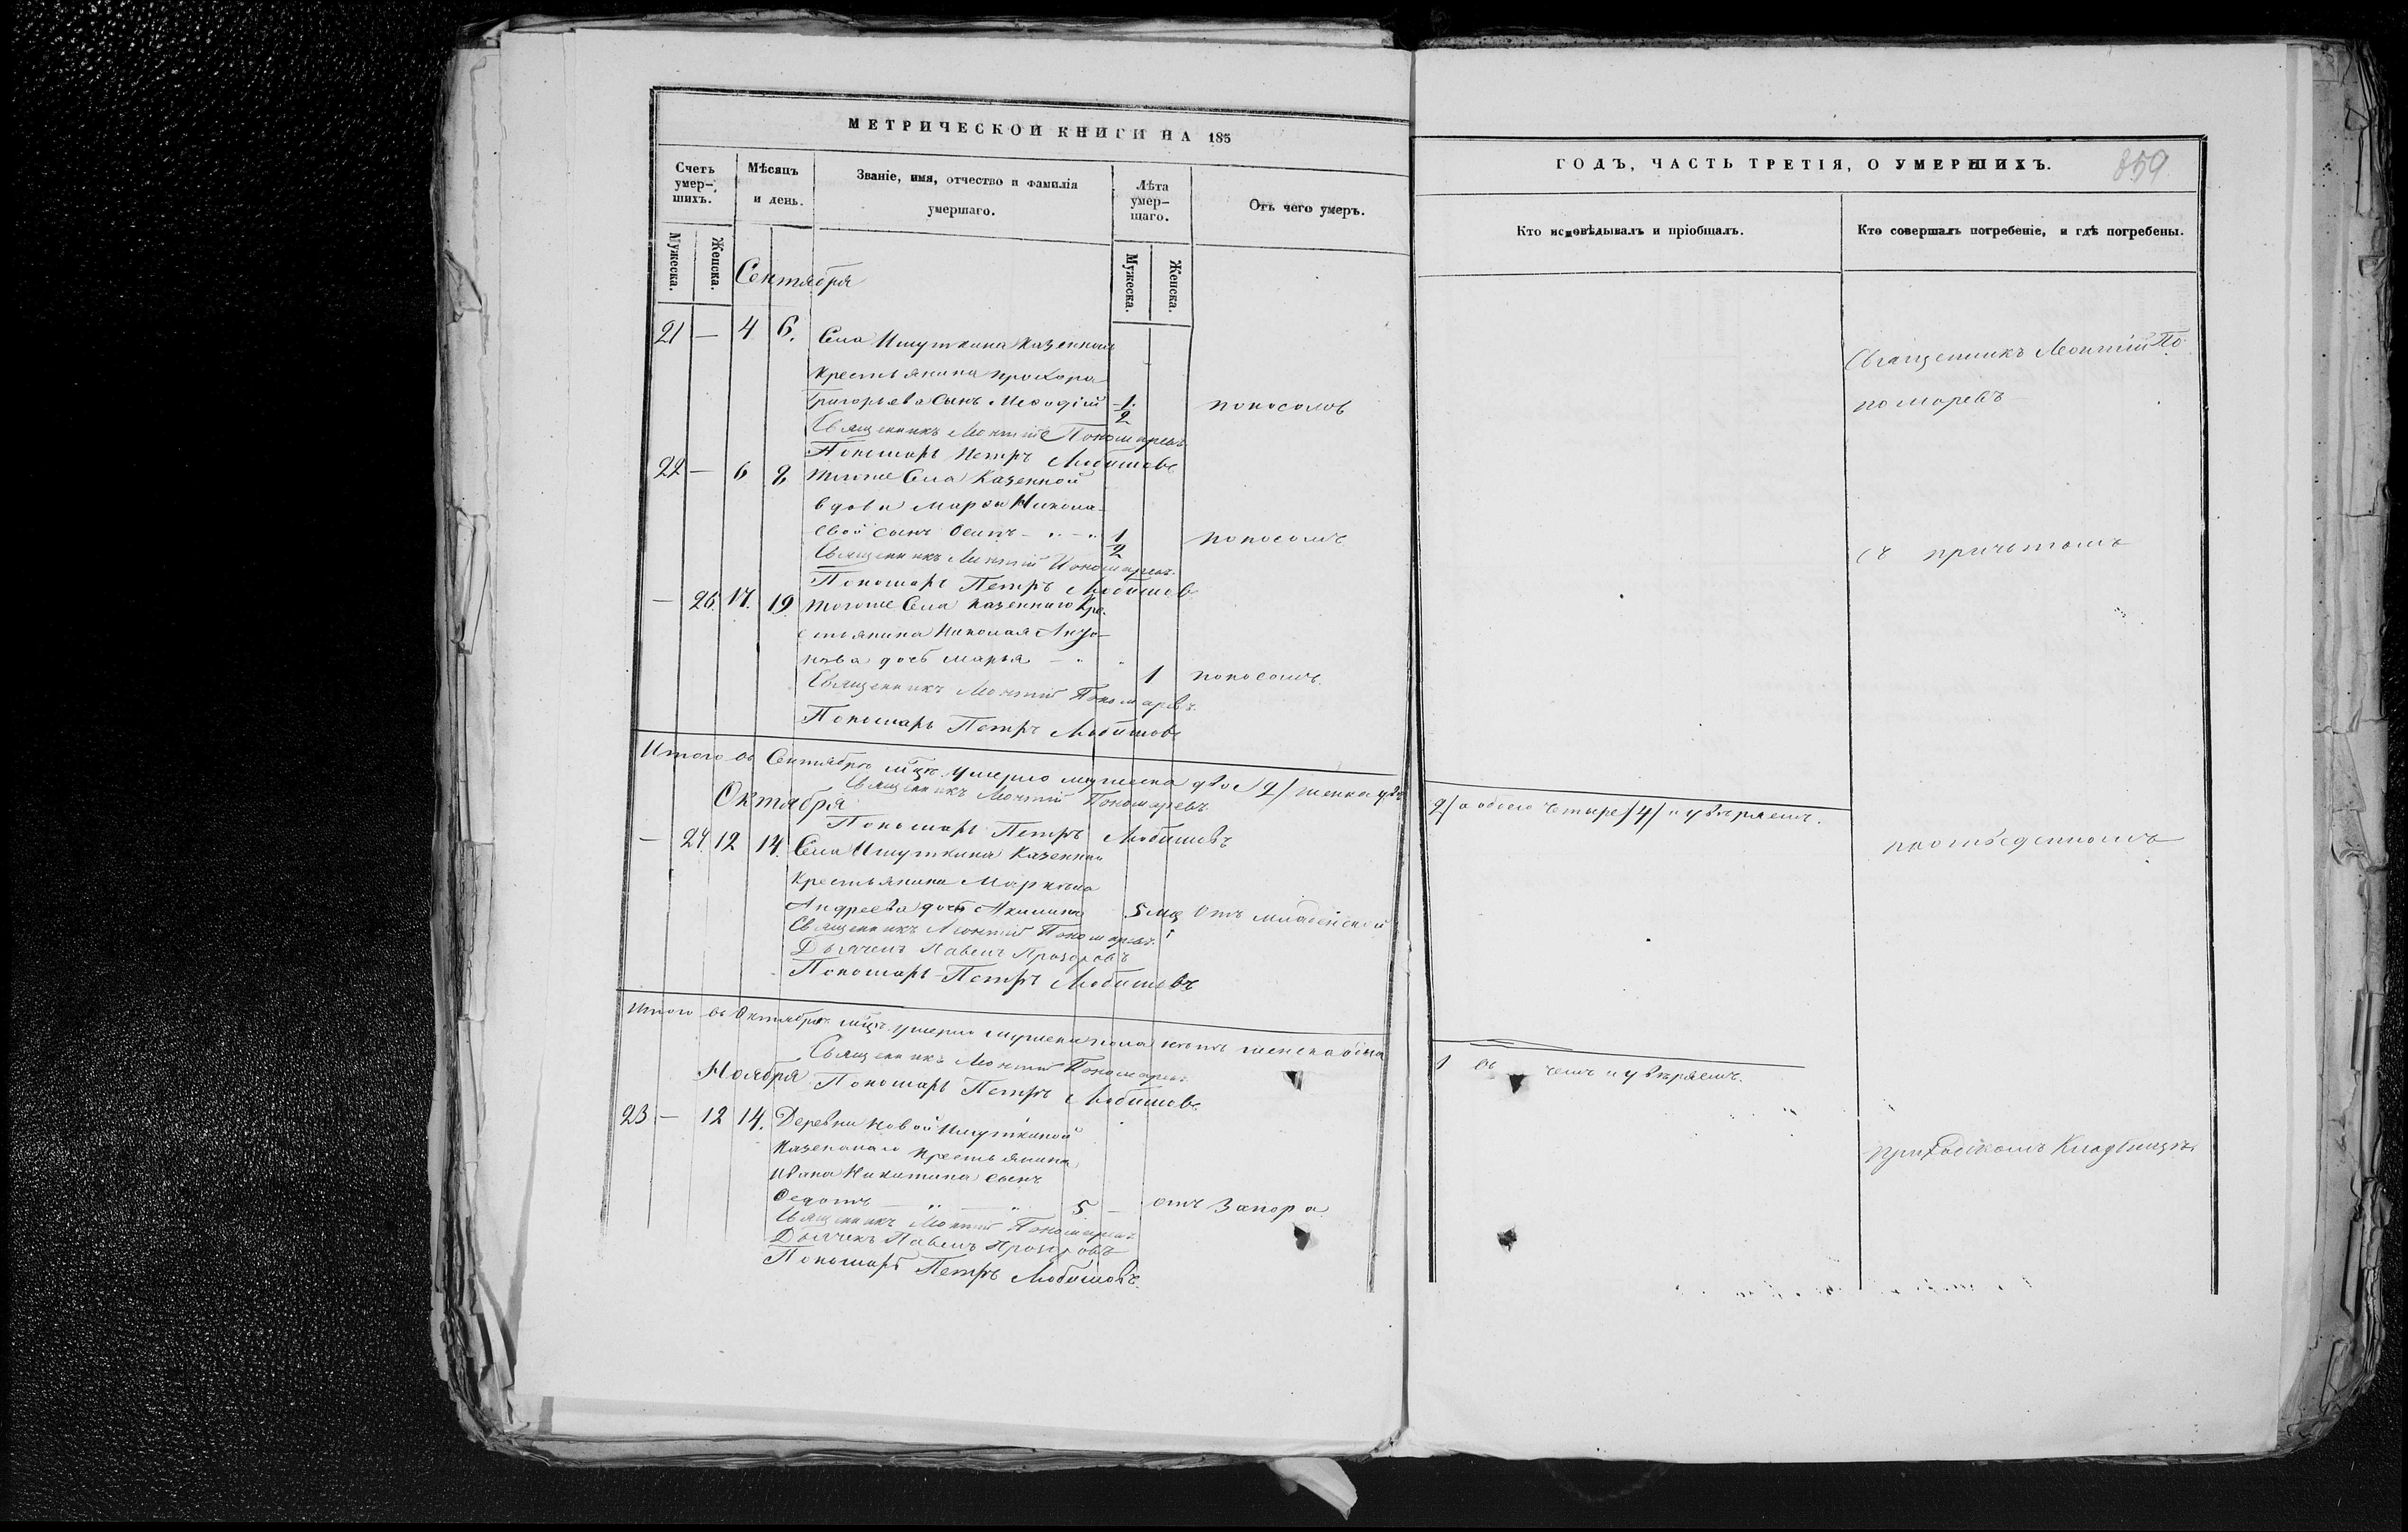 МЕТРИЧЕСКОЙ КНИГИ НА 185
Счетъ умер-шихъ.
Мѣсяцъ и день.
Званіе, имя, отчество и фамилія умершаго.
Лѣта умер-шаго.
Отъ чего умеръ.
Мужеска. Женска.
Мужеска. Женска.
Сентября
21 — 4 6. Села Ишуткина казеннаго
крестьянина Прохора
Григорьева сынъ Меѳодій 1/2 поносомъ
Священникъ Леонтій Пономаревъ
Пономарь Петръ Любимовъ
22 — 6 8 Тогоже Села Казенной
вдовы Марѳы Никола-
евой сынъ Осипъ 1/2 поносомъ
Священникъ Леонтій Пономаревъ.
Пономарь Петръ Любимовъ
— 26. 17. 19. Тогоже Села казеннаго кре-
стьянина Николая
дочь Марья 1 поносомъ.
Священникъ Леонтій Пономаревъ.
Пономарь Петръ Любимовъ
Итого въ Сентябрѣ мцѣ. умерло мужеска двое /2/ женска двѣ
Священникъ Леонтій Пономаревъ.
Октября
Пономарь Петръ Любимовъ
— 27. 12 14. Села Ишуткина Казеннаго
Крестьянина Маркела
Андреева дочь Акилина 5 мц Отъ младенской
Священникъ Леонтій Пономаревъ.
Дьячекъ Павелъ
Пономарь Петръ Любимовъ
Итого въ Октябрѣ мцѣ. умерло мужска пола нѣтъ женска одна
Священникъ Леонтій Пономаревъ.
Ноября Пономарь Петръ Любимовъ
23 — 12 14. Деревни Новой Ишуткиной
Казеннаго крестьянина
Ивана Никитина сынъ
Ѳедотъ 5 — отъ Запора.
Священникъ Леонтій Пономаревъ
Дьячекъ Павелъ
Пономарь Петръ Любимовъ.
ГОДЪ, ЧАСТЬ ТРЕТІЯ, О УМЕРШИХЪ. 859
Кто исповѣдывалъ и пріобщалъ.
Кто совершалъ погребеніе, и гдѣ погребены.
Священникъ Леонтій По
номаревъ
съ причтомъ
2/ а обоего четыре /4/ и увѣряемъ.
на отведенномъ
1 въ чемъ и увѣряемъ.
приходскомъ Кладбищѣ